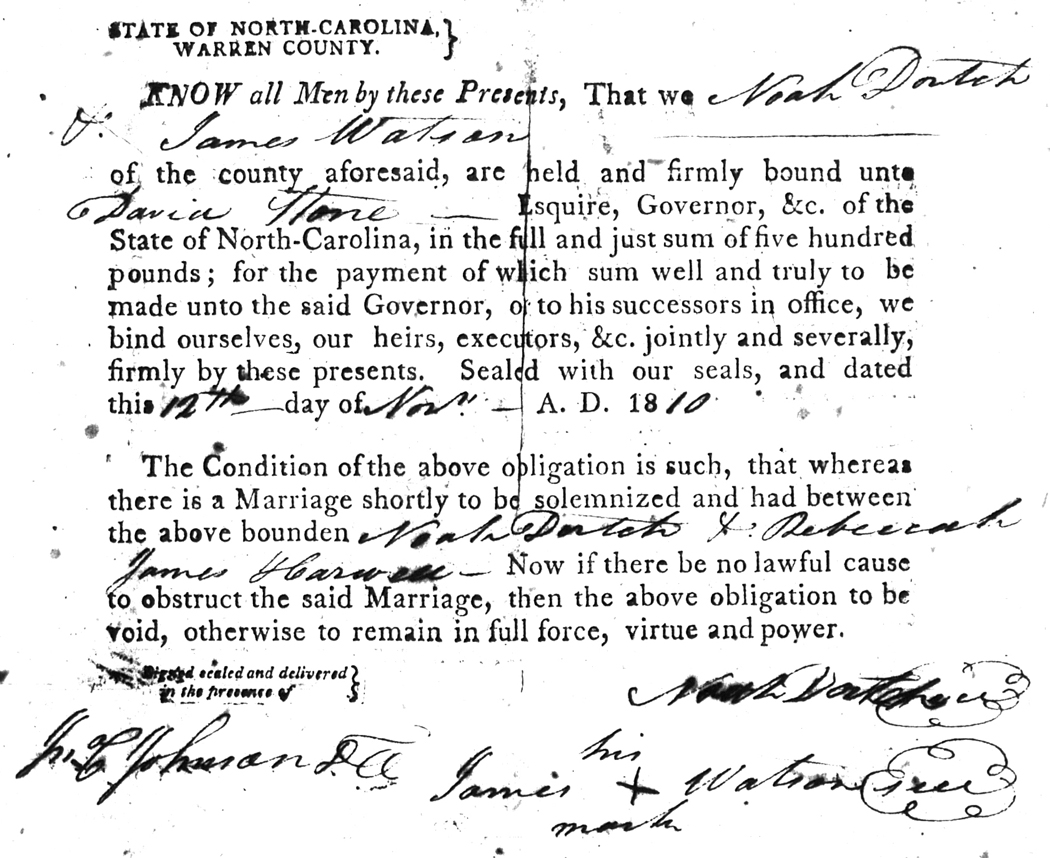 STATE OF NORTH-CAROLINA, }
WARREN COUNTY.
KNOW all Men by these Presents, That we Noah Dortch
& James Watson
of the county aforesaid, are held and firmly bound unto
David Stone — Esquire, Governor, &c. of the
State of North-Carolina, in the full and just sum of five hundred
pounds; for the payment of which sum well and truly to be
made unto the said Governor, or to his successors in office, we
bind ourselves, our heirs, executors, &c. jointly and severally,
firmly by these presents. Sealed with our seals, and dated
this 12th day of Novr. — A. D. 1810
The Condition of the above obligation is such, that whereas
there is a Marriage shortly to be solemnized and had between
the above bounden Noah Dortch & Rebeccah
James Harwell — Now if there be no lawful cause
to obstruct the said Marriage, then the above obligation to be
void, otherwise to remain in full force, virtue and power.
Signed sealed and delivered }
in the presence of
Noah Dortch seal
his
Johnson D.C.
James + Watson seal
mark